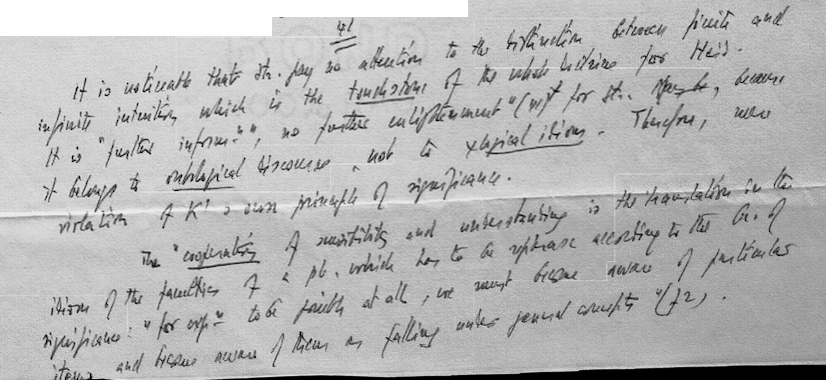 41
It is noticeable that St. pay no attention to the distinction between finite and
infinite intuition, which is the touchstone of the whole doctrine for Heid.
It is "further inform.", no further enlightenment" (not for St. , because
it belongs to ontological discourse, not to logical idiom. Therefore, mere
violation of K's own principle of significance.
The "cooperation of sensibility and understanding is the translation in the
idiom of the faculties of a pb. which has to be rephrase according to the of
significance: "for exp. to be possible at all, we must become aware of particular
items and become aware of them as falling under general concepts" (72).